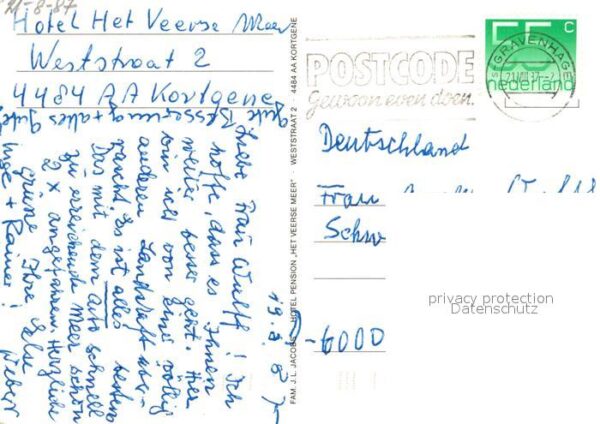 21-8-87
Hotel Het Veerse Meer
Weststraat 2
4484 AA Kortgene
gute Besserung + alles Gute!
19.8.87
Liebe Frau Wulff! Ich
hoffe, dass es Ihnen
weiter besser geht. Hier
bin ich von einer völlig
anderen Landschaft über-
rascht. Es ist alles bestens
Das mit dem Auto schnell
zu erreichende Meer schon
2 x angefahren. Herzliche
Grüsse Ihre
Inge + Rainer! Weber
FAM. J.L. JACOBS HOTEL PENSION „HET VEERSE MEER" WESTSTRAAT 2 4484 AA KORTGENE
POSTCODE
Gewoon even doen.
'S-GRAVENHAGE
21.VIII.87
55 c
nederland
Deutschland
Frau
Schw
-6000
privacy protection
Datenschutz